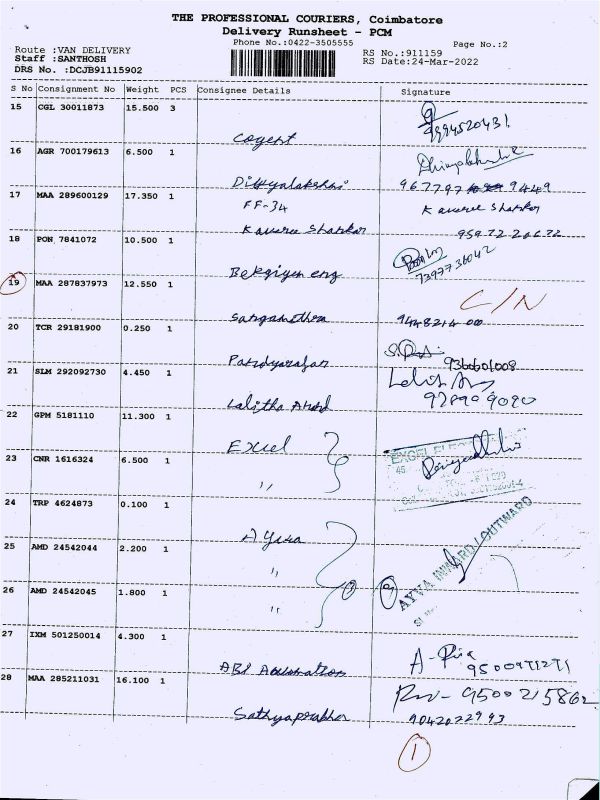 THE PROFESSIONAL COURIERS, Coimbatore
Delivery Runsheet - PCM
Phone No.:0422-3505555
Page No.:2
Route :VAN DELIVERY
Staff :SANTHOSH
DRS No. :DCJB91115902
RS No.:911159
RS Date:24-Mar-2022
S No Consignment No Weight PCS Consignee Details Signature
15 CGL 30011873 15.500 3
Cogent
9994520431
16 AGR 700179613 6.500 1
Divyalakshmi
967797 9449
17 MAA 289600129 17.350 1
FF-34
Kaveree Shankar
Kaveree Shankar
18 PON 7841072 10.500 1
eng
7397736042
19 MAA 287837973 12.550 1
C/N
Sangamithra
20 TCR 29181900 0.250 1
Pandyarajan
9360601008
21 SLM 292092730 4.450 1
Lalitha
978909090
22 GPM 5181110 11.300 1
Excel
23 CNR 1616324 6.500 1
,,
24 TRP 4624873 0.100 1
Ayya
25 AMD 24542044 2.200 1
,,
AYVA INWARD / OUTWARD
26 AMD 24542045 1.800 1
,,
27 IXM 501250014 4.300 1
ABI Automation
9500971271
28 MAA 285211031 16.100 1
9500215862
Sathyaprabha
9042022993
1